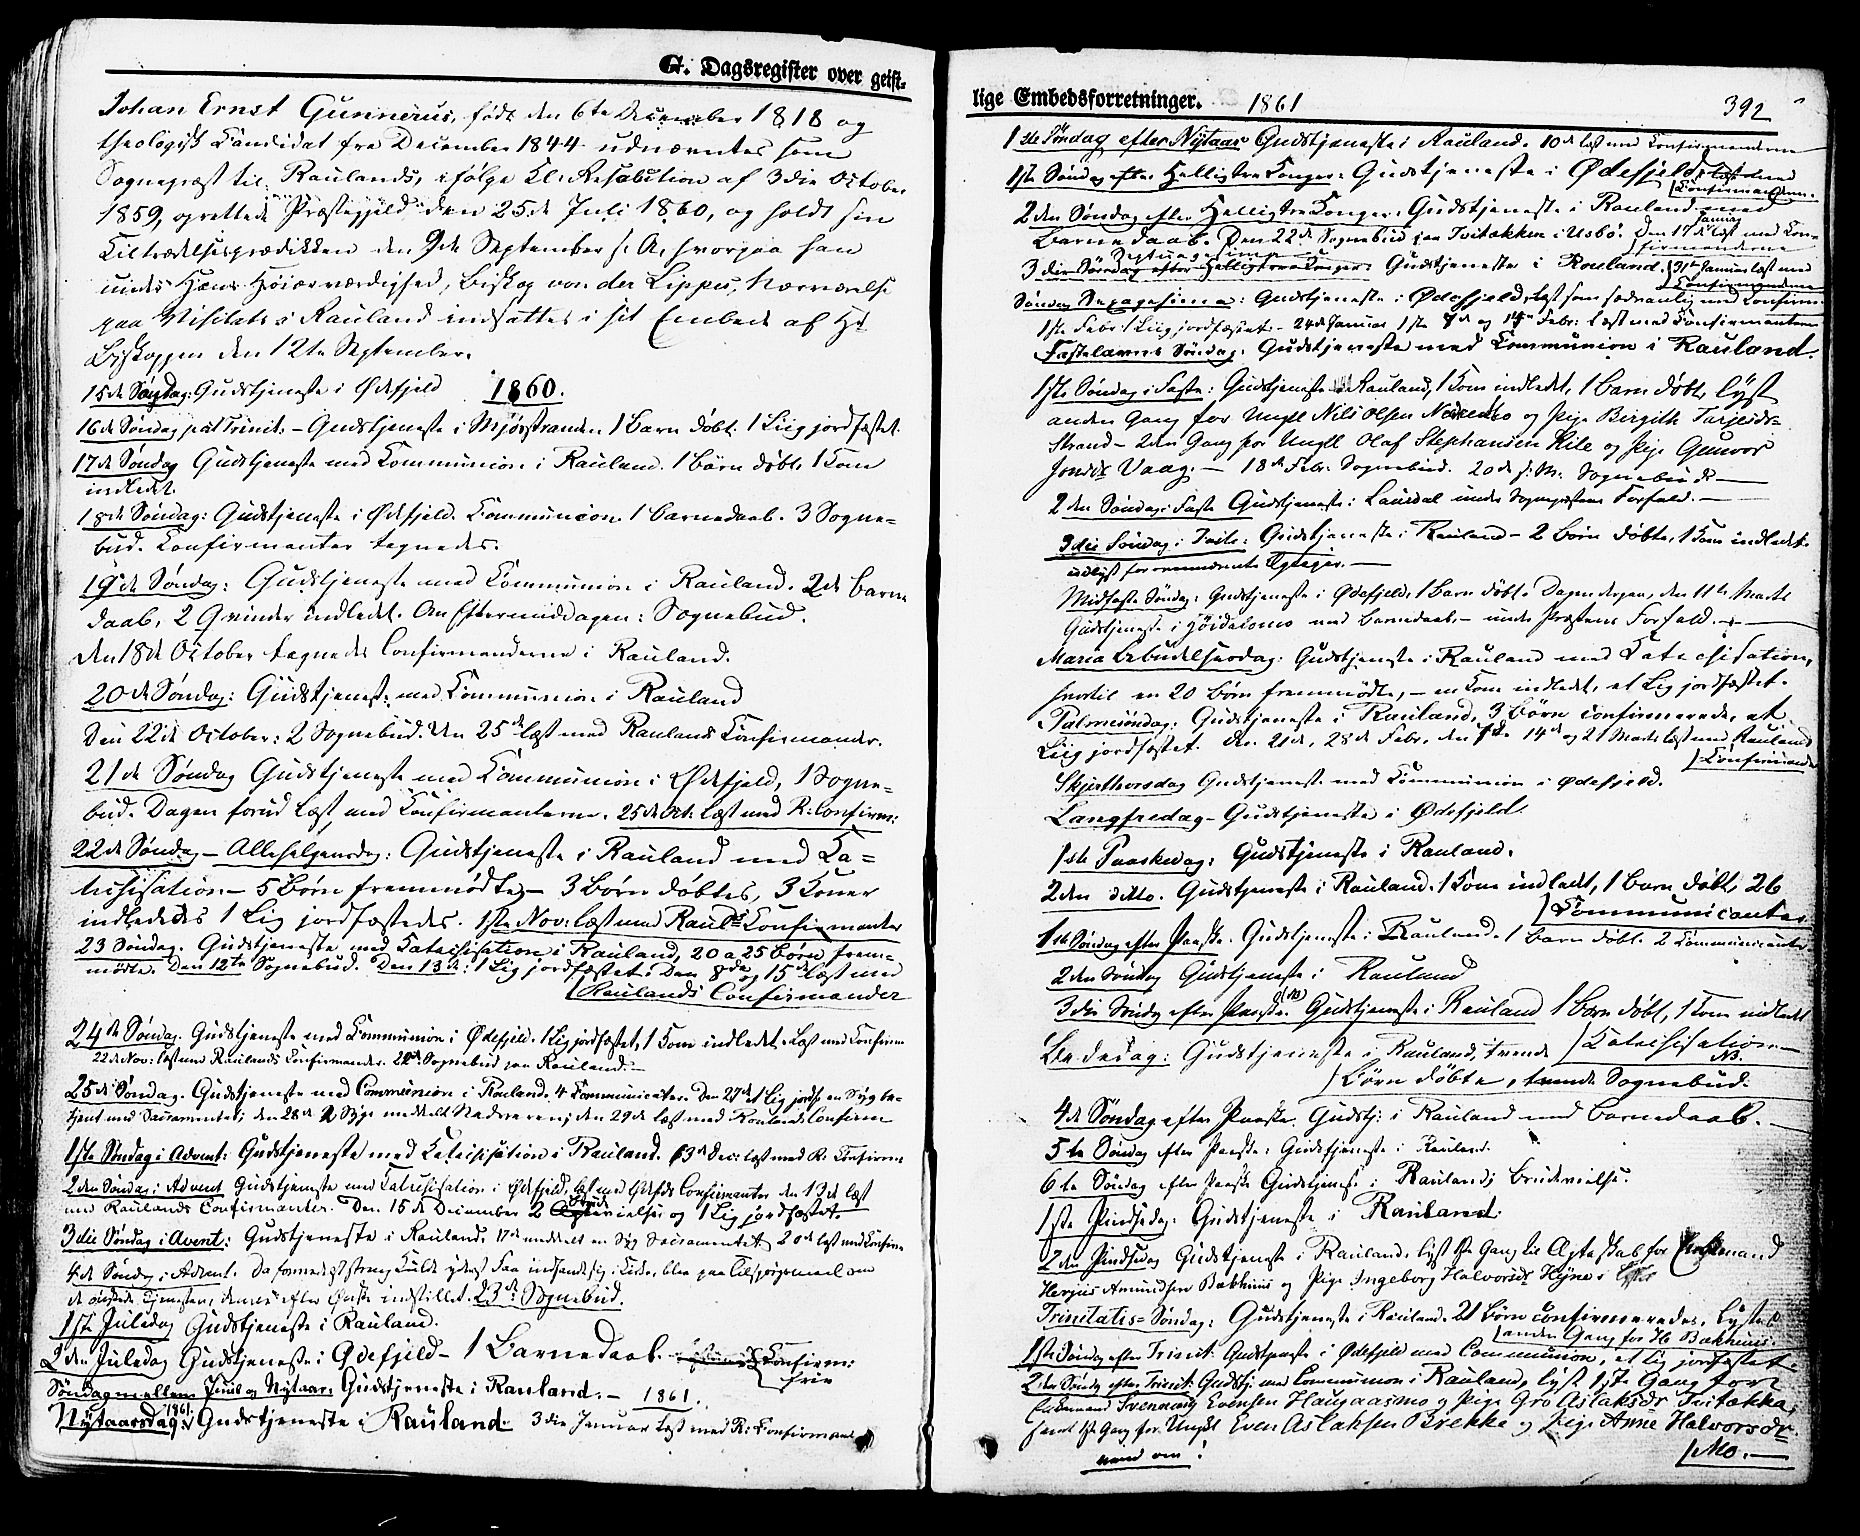 G. Dagsregister over geist-
Johan Ernst Gunnerus, født den 6te December 1818 og
theologisk Candidat fra December 1844 udnævntes som
Sognepræst til Raulands, ifølge Kl: Resolution af 3die October
1859, oprettede Præstegjeld den 25de Juli 1860, og holdt sin
Tiltrædelsesprædikken den 9de September s: A, hvorpaa han
under Hans Høiærværdighed, Biskop von der Lippes, Nærværelse
paa Visitats i Rauland indsattes i sit Embede af Hr
Biskoppen den 12te September.
15de Søndag: Gudstjeneste i Ødefjeld 1860.
16de Søndag post Trinit. - Gudstjeneste i Mjøsstranden. 1 Barn døbt. 1 Liig jordfæstet.
17de Søndag Gudstjeneste med Communion i Rauland. 1 Børn døbt. 1 Kone
indledet.
18de Søndag: Gudstjeneste i Ødefjeld. Communion. 1 Barnedaab. 3 Sogne=
bud. Confirmanter tegnedes.
19de Søndag: Gudstjeneste med Communion i Rauland. 2de Barne
daab, 2 Qvinder indledet. Om Eftermiddagen: Sognebud.
Den 18de October tegnedes Confirmanderne i Rauland.
20de Søndag: Gudstjeneste med Communion i Rauland
Den 22de October: 2 Sognebud. Den 25de læst med Raulands Confirmander.
21de Søndag Gudstjeneste med Communion i Ødefjeld, 1 Sogne=
bud. Dagen forud læst med Confirmanterne. 25de Oct: læst med R: Confirm:
22de Søndag - Allehelgensdag: Gudstjeneste i Rauland med Ca=
techisation - 5 Børn fremmødte - 3 Børn døbtes, 3 Koner
indledes 1 Lig jordfæstedes. 1ste Nov: læst med Raul:s Confirmanter
23 Søndag. Gudstjeneste med Catechisation i Rauland, 20 a 25 Børn frem=
mødte. Den 12te Sognebud. Den 13de: 1 Lig jordfæstet. Den 8de og 15de læst med
Raulands Confirmander
24de Søndag. Gudstjeneste med Communion i Ødefjeld. 1 Lig jordfæstet, 1 Kone indledet. Læst med Confirm
22de Nov: læst med Raulands Confirmander. Sognebud paa Rauland.
25de Søndag. Gudstjeneste med Communion i Rauland. 4 Communicanter. Den 27de et Lig jordf: en Syg be=
tjent med Sacramentet; den 28de Syge meddelt Nadveren; den 29de læst med Raulands Confirm
1ste Søndag i Advent: Gudstjeneste med Catechisation i Rauland. 3de Dec: læst med R: Confirm
2den Søndag i Advent Gudstjeneste med Catechisation i Ødefjeld, læst med Confirmanter den 13de læst
med Raulands Confirmanter. Den 15de December 2 Brudevielser og 1 Lig jordfæstet.
3die Søndag i Advent: Gudstjeneste i Rauland. 17de meddelt en Syg Sacramentet 20de læst med Confirm
4de Søndag i Advent. Da formedelst streng Kulde yderst Faa indfandt sig i Kirke, blev paa Tilspørgsmaal om
de ønskede Tjenesten, denne efter Ønske indstillet. 23de Sognebud.
1ste Juledag Gudstjeneste i Rauland.
2den Juledag Gudstjeneste i Ødefjeld - 1 Barnedaab. Confirm:
Søndag mellem Juul og Nytaar: Gudstjeneste i Rauland. - 1861.
Nytaarsdag 1861: Gudstjeneste i Rauland. 3die Januar læst med R: Confirmand
lige Embedsforretninger. 1861 392
1ste Søndag efter Nytaar Gudstjeneste i Rauland. 10de læst med Confirmanderne
1ste Søndag efter Helligtrekonger: Gudstjeneste i Ødefjeld, læst med
Confirmanderne.
2den Søndag efter Helligtrekonger: Gudstjeneste i Rauland med
Barnedaab. Den 22de Sognebud paa Tvitækken i Usbø. Den 17de Januar læst med Con=
firmanderne
Septuagesima
3die Søndag efter Helligtrekonger: Gudstjeneste i Rauland. 31te Januar læst med
Confirmanderne
Søndag Sexagesima: Gudstjeneste i Ødefjeld, læst som sædvanlig med Confirm
1ste Febr: 1 Liig jordfæstet. - 24de Januar 1ste 7de og 14de Febr: læst med Confirmanterne
Fastelavns Søndag: Gudstjeneste med Communion i Rauland.
1ste Søndag i Faste: Gudstjeneste Rauland, 1 Kone indledet, 1 Barn døbt, lyst
anden Gang for Ungk Nils Olsen og Pige Birgith Tarjeids=
Strand - 2den Gang for Ungk Olaf Stephansen Kile og Pige Gunvor
Jonsdr Vaag. - 18de Febr: Sognebud. 20de s: M. Sognebud -
2den Søndag i Faste Gudstjeneste: under Sognepræstens Forfald. -
3die Søndag i Faste: Gudstjeneste i Rauland - 2 Børn døbte, 1 Kone indledet
udlyst for Pigeger. -
Midfaste Søndag: Gudstjeneste i Ødefjeld, 1 Barn døbt. Dagen derpaa, den 11te Marts
Gudstjeneste i Høidalsmo med Barnedaab, - under Præstens Forfald. -
Maria Bebudelsesdag: Gudstjeneste i Rauland med Catechisation,
hvortil en 20 Børn fremmødte, - en Kone indledet, et Lig jordfæstet.
Palmesøndag: Gudstjeneste i Rauland, 3 Børn confirmerede, et
Liig jordfæstet. Den 21de, 28de Febr, den 7de 14de og 21 Marts læst med Rauland
Confirmander
Skjærthorsdag Gudstjeneste med Communion i Ødefjeld.
Langfredag - Gudstjeneste i Ødefjeld.
1ste Paaskedag: Gudstjeneste i Rauland.
2den ditto. Gudstjeneste i Rauland. 1 Kone indledt, 1 Barn døbt, 26
Communicanter.
1ste Søndag efter Paaske. Gudstjeneste i Rauland. 1 Barn døbt. 2 Communicanter
2den Søndag Gudstjeneste i Rauland
3die Søndag efter Paaske. Gudstjeneste i Rauland 1 Barn døbt, 1 Kone indledet
Catechisation
Bededag: Gudstjeneste i Rauland, trende NB.
Børn døbte, trende Sognebud.
4de Søndag efter Paaske. Gudstj: i Rauland med Barnedaab. -
5te Søndag efter Paaske: Gudstjeneste i Rauland.
6te Søndag efter Paaske Gudstjeneste i Rauland; Brudevielse.
1ste Pindsedag: Gudstjeneste i Rauland.
2den Pindsedag Gudstjeneste i Rauland. lyst 1ste Gang til Ægteskab for Enkemand
Herjus Amundsen Bækhuus og Pige Ingeborg Halvorsdr
Trinitatis=Søndag: Gudstjeneste i Rauland. 21 Børn confirmeredes. Lystes
anden Gang for H: Bækhuus.
1ste Søndag efter Trinit: Gudstjeneste i Ødefjeld med Communion, et Lig jordfæstet.
2den Søndag efter Trinit: Gudstj: med Communion i Rauland, lyst 1ste Gang for
Enkemand Svenning Evensen Haugaasmo og Pige Gro Aslaksdr Tvitækka,
samt 1ste Gang for Ungk Even Aslaksen Brekke og Pige Anne Halvorsdr
Mo. -
vend om!